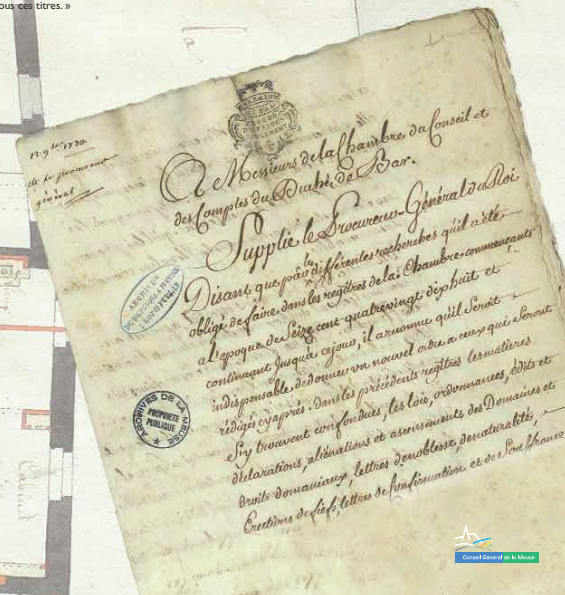 ous ces titres. »
12. 9bre 1770.
général
A Messieurs de la Chambre du Conseil et
des Comptes du Duché de Bar.
Supplie le Procureur-Général du Roi
Disant que par les différentes recherches qu'il a été
obligé de faire dans les regîtres de la Chambre commenceants
a l'époque de Seize cent quatrevingt dixhuit et
continuant Jusqu'a cejour, il areconnu qu'il Seroit
indispensable dedonner un nouvel ordre a ceux qui Seront
rédigés cyaprès. dans les précédents regîtres les matieres
Sy trouvent confondues, les lois, ordonnances, édits et
déclarations, aliénations et ascensements des Domaines et
droits domaniaux, lettres denoblesse, denaturalité,
Erections de fiefs, lettres de Confirmation et de Souffrance
ARCHIVES
ARCHIVES DE LA MEUSE
PROPRIÉTÉ
PUBLIQUE
Conseil Général de la Meuse